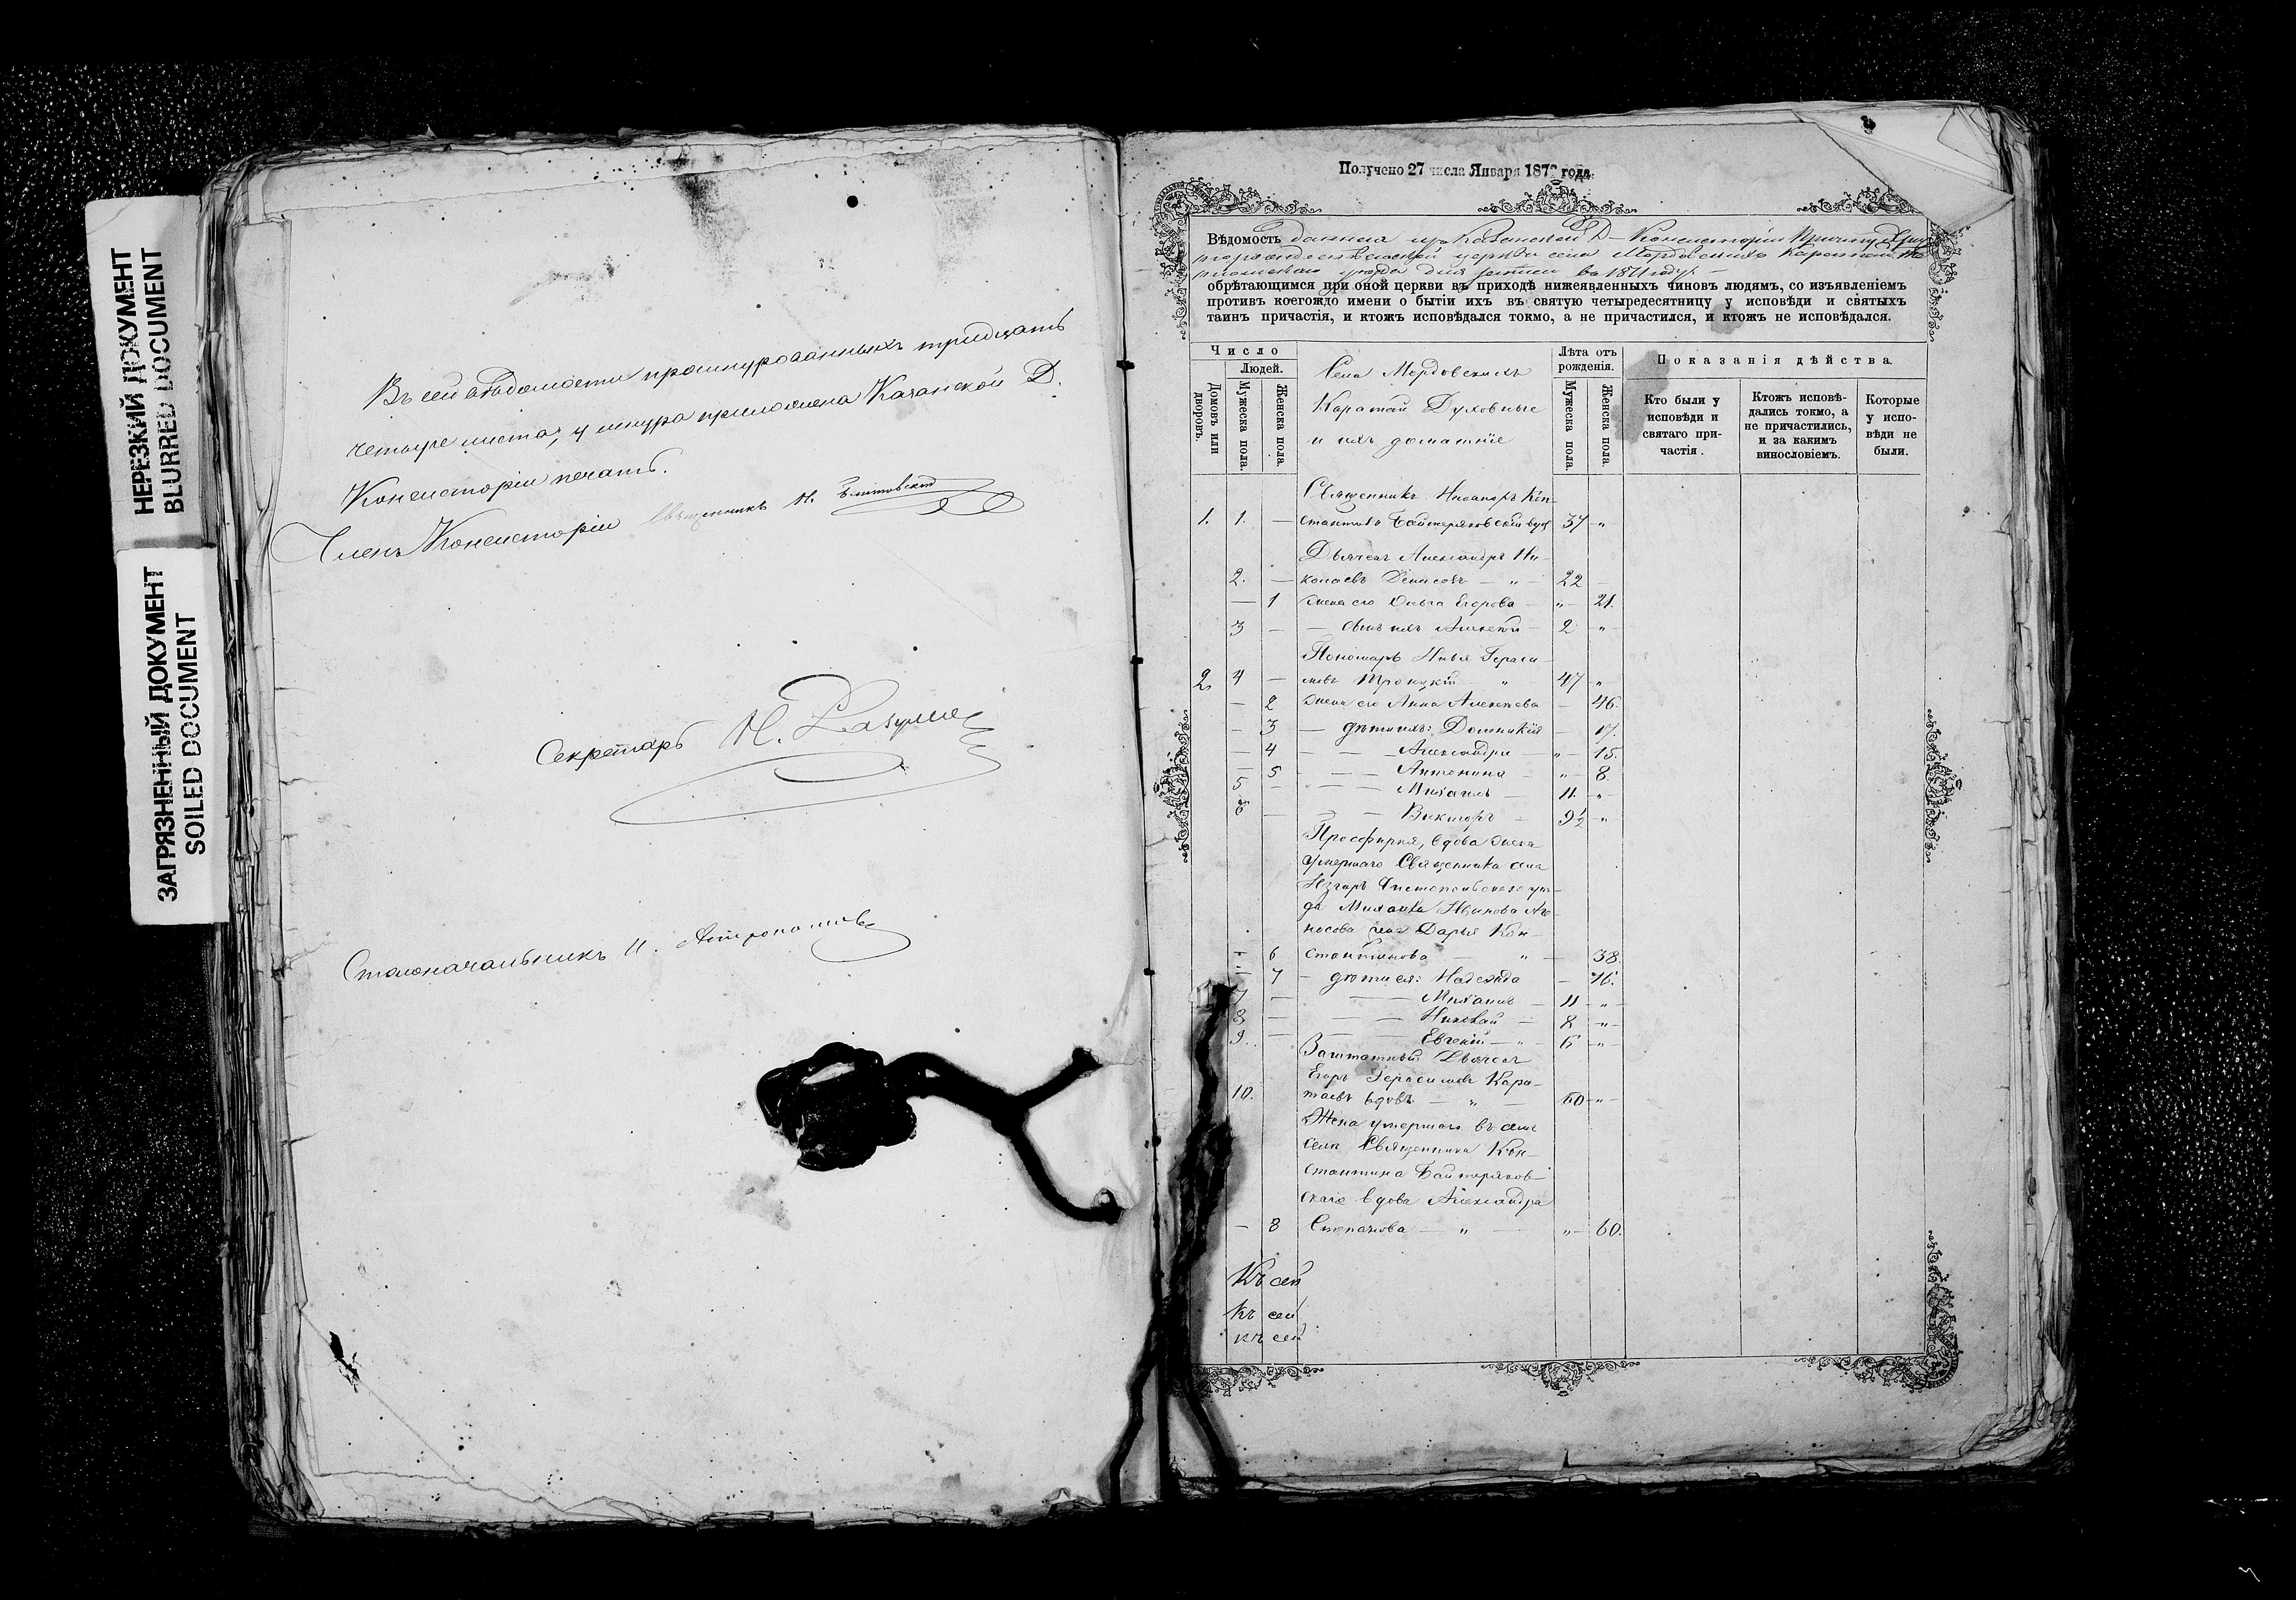 НЕРЕЗКИЙ ДОКУМЕНТ
BLURRED DOCUMENT
ЗАГРЯЗНЕННЫЙ ДОКУМЕНТ
SOILED DOCUMENT
Въ сей вѣдомости прошнурованныхъ тридцать
четыре листа, у шнура приложена Казанской Д.
Консисторіи печать.
Членъ Консисторіи Священникъ
Секретарь
Столоначальникъ
Получено 27 числа Января 187 года.
Вѣдомость данная изъ Казанской Д Консисторіи Причту
церкви села Мордовскихъ
уѣзда для въ 1871 году
обрѣтающимся при оной церкви въ приходѣ нижеявленныхъ чиновъ людямъ, со изъявленіемъ
противъ коегождо имени о бытіи ихъ въ святую четыредесятницу у исповѣди и святыхъ
таинъ причастія, и ктожъ исповѣдался токмо, а не причастился, и ктожъ не исповѣдался.
Число
Людей.
Домовъ или дворовъ.
Мужеска пола.
Женска пола.
Села Мордовскихъ
Каратай Духовные
и ихъ домашніе
Лѣта отъ рожденія.
Мужеска пола.
Женска пола.
Показанія дѣйства.
Кто были у исповѣди и святаго причастія.
Ктожъ исповѣдались токмо, а не причастились, и за какимъ винословіемъ.
Которые у исповѣди не были.
Священникъ Никаноръ Кон-
1. 1. — стантиновъ Байтеряковскій вдов 37 "
Дьячекъ Александръ Ни-
2. — колаевъ Денисовъ — " — 22 —
— 1 жена его Ольга Егорова — " — 21.
3 — — сынъ ихъ Алексѣй — 2 "
Пономарь Илья Гераси-
2. 4 — мовъ Троицкій — " 47 "
— 2 жена его Анна Алексѣева — 46.
— 3 — дѣти ихъ: Домникія — 17.
— 4 — — Александра " — 15.
— 5 — — Антонина — " — 8.
5 — — — Михаилъ — 11. "
6 — — — Викторъ — 9½ "
Просфирня, вдова жена
умершаго Священника села
Чистопольскаго уѣз-
да Михаила
носова Дарья Кон-
— 6 стантинова — " — 38.
— 7 — дѣти ея: Надежда — 16.
7 — — — Михаилъ — 11 — " —
8 — — — Николай — 8 — " —
9. — — — Евгеній — " — 6 — " —
Заштатный Дьячекъ
Егоръ Герасимовъ Кара-
10. таевъ вдовъ — " — 60 — " —
Жена умершаго въ семъ
селѣ Священника Кон-
стантина Байтеряков-
скаго вдова Александра
— 8 Степанова — " — " — 60.
Къ сей
Къ сей
къ сей